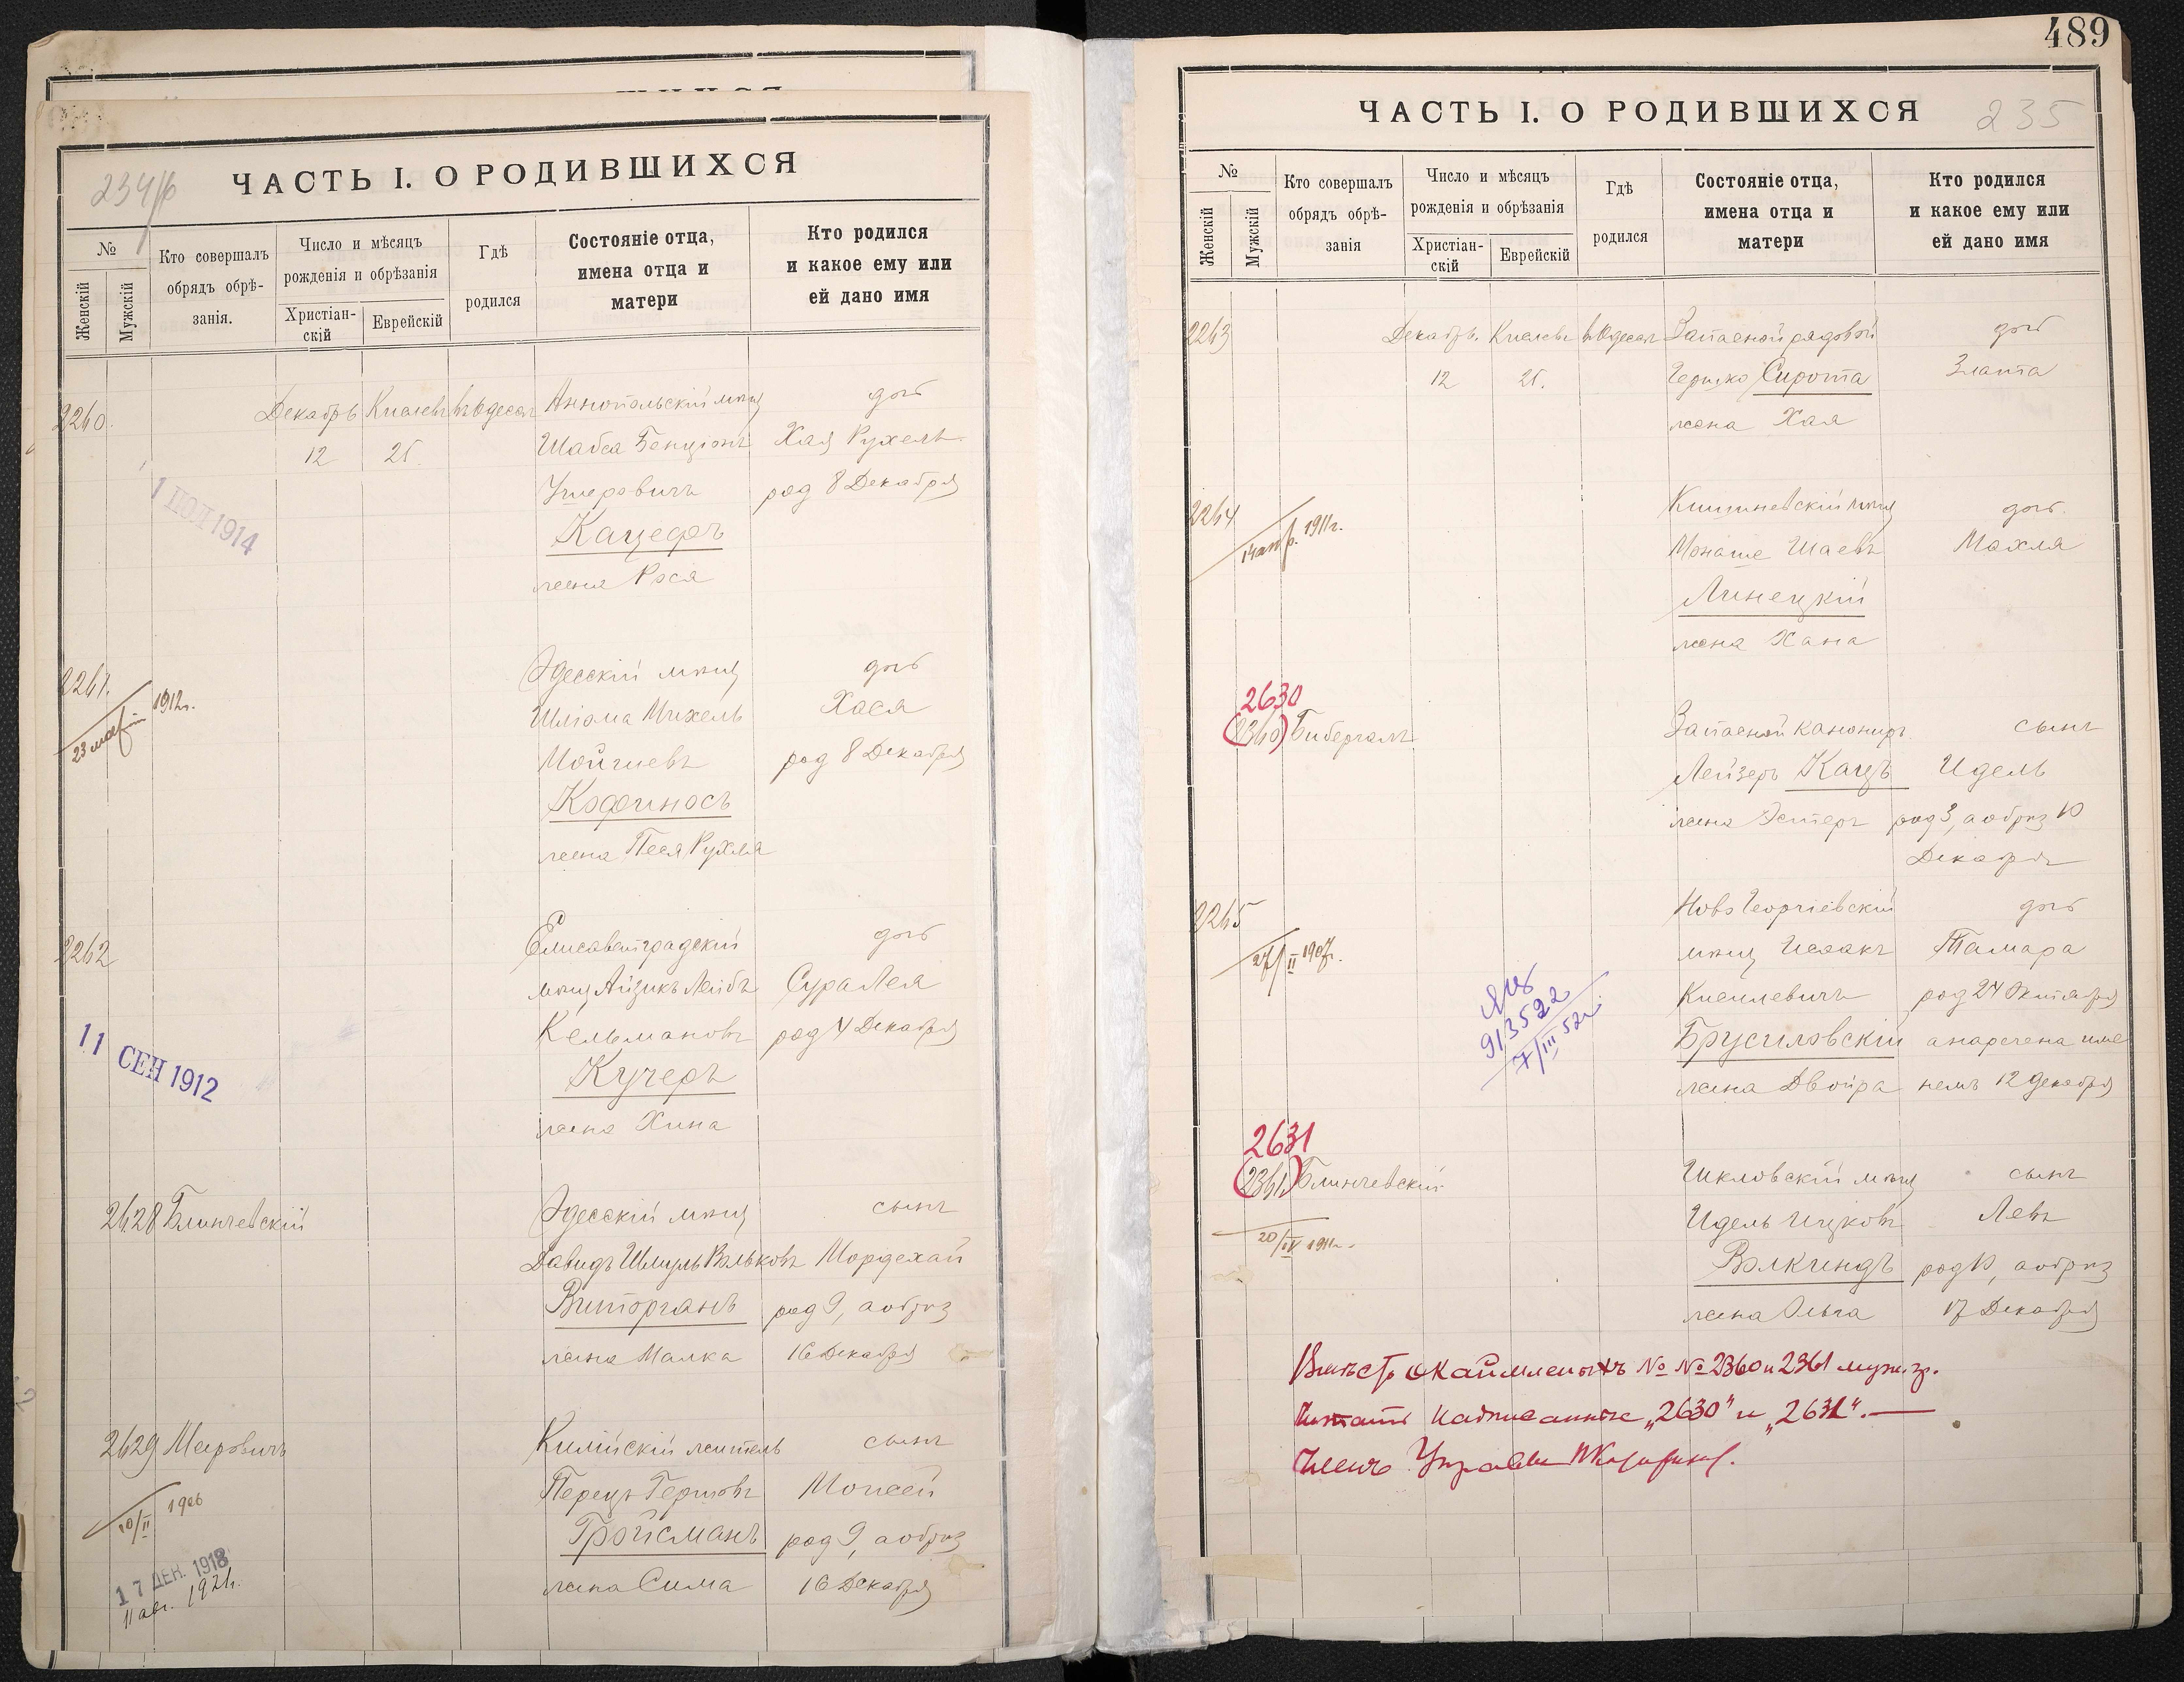 234/б
ЧАСТЬ I. О РОДИВШИХСЯ
№
Женскій
Мужскій
Кто совершалъ
обрядъ обрѣ-
занія.
Число и мѣсяцъ
рожденія и обрѣзанія
Христіан-
скій
Еврейскій
Гдѣ
родился
Состояніе отца,
имена отца и
матери
Кто родился
и какое ему или
ей дано имя
2260.
Декабрь
12
Кислевъ
25.
въ Одессѣ
Аннопольскій мѣщ
Шабса Бенціонъ
Ушеровичъ
Кацефъ
жена Рося
дочь
Хая Рухель
род 8 Декабря
1 1914
2261.
23 1912г.
Одесскій мѣщ
Шліома Михель
Кофиносъ
жена Песя Рухля
дочь
Хася
род 8 Декабря
2262
11 СЕН 1912
Елисаветградскій
мѣщ Айзикъ Лейбъ
Кельмановъ
Кучеръ
жена Хина
дочь
Сура Лея
род 4 Декабря
2628 Блинчевскій
Одесскій мѣщ
Давидъ Шмуль Вольковъ
Виторганъ
жена Малка
сынъ
Мордехай
род 9, а обрѣз
16 Декабря
2629 Меировичъ
10/II 1906
17 ДЕК. 1918
11 авг. 1921г.
Килійскій житель
Перецъ Гершовъ
Гройсманъ
жена Сима
сынъ
Моисей
род 9, а обрѣз
16 Декабря
489
235
ЧАСТЬ I. О РОДИВШИХСЯ
№
Женскій
Мужскій
Кто совершалъ
обрядъ обрѣ-
занія
Число и мѣсяцъ
рожденія и обрѣзанія
Христіан-
скій
Еврейскій
Гдѣ
родился
Состояніе отца,
имена отца и
матери
Кто родился
и какое ему или
ей дано имя
2263
Декабрь.
12
Кислевъ
25.
въ Одессѣ
Запасной рядовой
Гершко Сирота
жена Хая
дочь
Злата
2264
14 апр. 1911г.
Кишиневскій мѣщ
Монаше Шаевъ
Линецкій
жена Хана
дочь
Махля
2630
(2360) Бибергалъ
Запасной канониръ
Лейзеръ Кацъ
жена Эстеръ
сынъ
Идель
род 3, а обрѣз 10
Декабря
2265
27/II 1907г.
913522
7/III 52г.
Ново Георгіевскій
мѣщ Исаакъ
Киселевичъ
Брусиловскій
жена Двойра
дочь
Тамара
род 24 Октября
а наречена име
немъ 12 Декабря
2631
(2361) Блинчевскій
20/IV 1911г.
Шкловскій мѣщ
Идель Ицковъ
Волкиндъ
жена Ольга
сынъ
Левъ
род 10, а обрѣз
17 Декабря
Вмѣсто окаймленныхъ №№ 2360 и 2361 муж. гр.
Читать надписанные „2630" и „2631".—
Членъ Управы